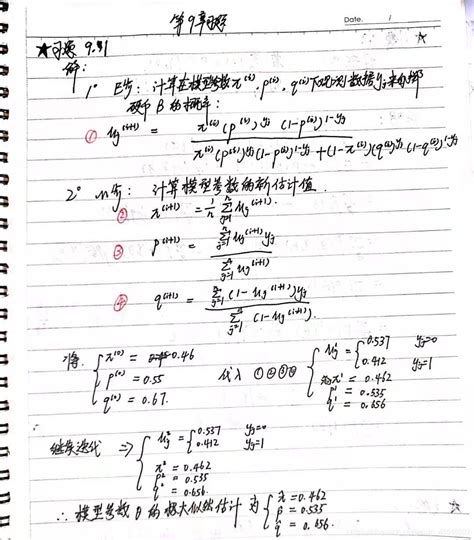 第9章习题
Date. /
★习题 9.1
解:
1° E步: 计算在模型参数π^(i), p^(i), q^(i)下观测数据y_j来自掷
硬币B的概率:
① μ_j^(i+1) = π^(i)(p^(i))^y_j (1-p^(i))^1-y_j / π^(i)(p^(i))^y_j(1-p^(i))^1-y_j + (1-π^(i))(q^(i))^y_j(1-q^(i))^1-y_j
2° M步: 计算模型参数的新估计值.
② π^(i+1) = 1/n Σ_j=1^n μ_j^(i+1).
③ p^(i+1) = Σ_j=1^n μ_j^(i+1) y_j / Σ_j=1^n μ_j^(i+1)
④ q^(i+1) = Σ_j=1^n (1-μ_j^(i+1))y_j / Σ_j=1^n (1-μ_j^(i+1)).
将. { π^(0) = 0.46 p^(0) = 0.55 q^(0) = 0.67. 代入 ①②③④ { μ_j^1 = { 0.537 y_j=0 0.412 y_j=1 π^1 = 0.462 p^1 = 0.535 q^1 = 0.656
继续迭代 ⇒ { μ_j^2 = { 0.537 y_j=0 0.412 y_j=1
π^2 = 0.462
p^2 = 0.535
q^2 = 0.656.
∴ 模型参数θ的极大似然估计为 { π̂ = 0.462 p̂ = 0.535 q̂ = 0.656.